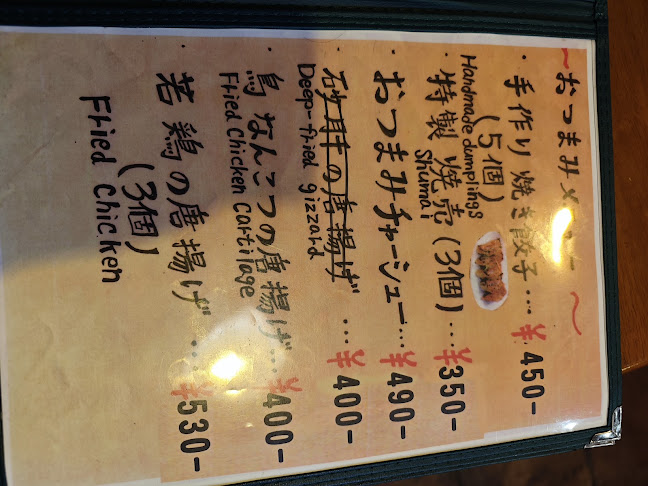 ~おつまみメニュー~
・手作り焼き餃子…¥450-
(5個)
Handmade dumplings
・特製焼売(3個)…¥350-
Shumai
・おつまみチャーシュー…¥490-
・砂肝の唐揚げ…¥400-
Deep-fried gizzard
・鳥なんこつの唐揚げ…¥400-
Fried Chicken Cartilage
・若鶏の唐揚げ…¥530-
(3個)
Fried Chicken